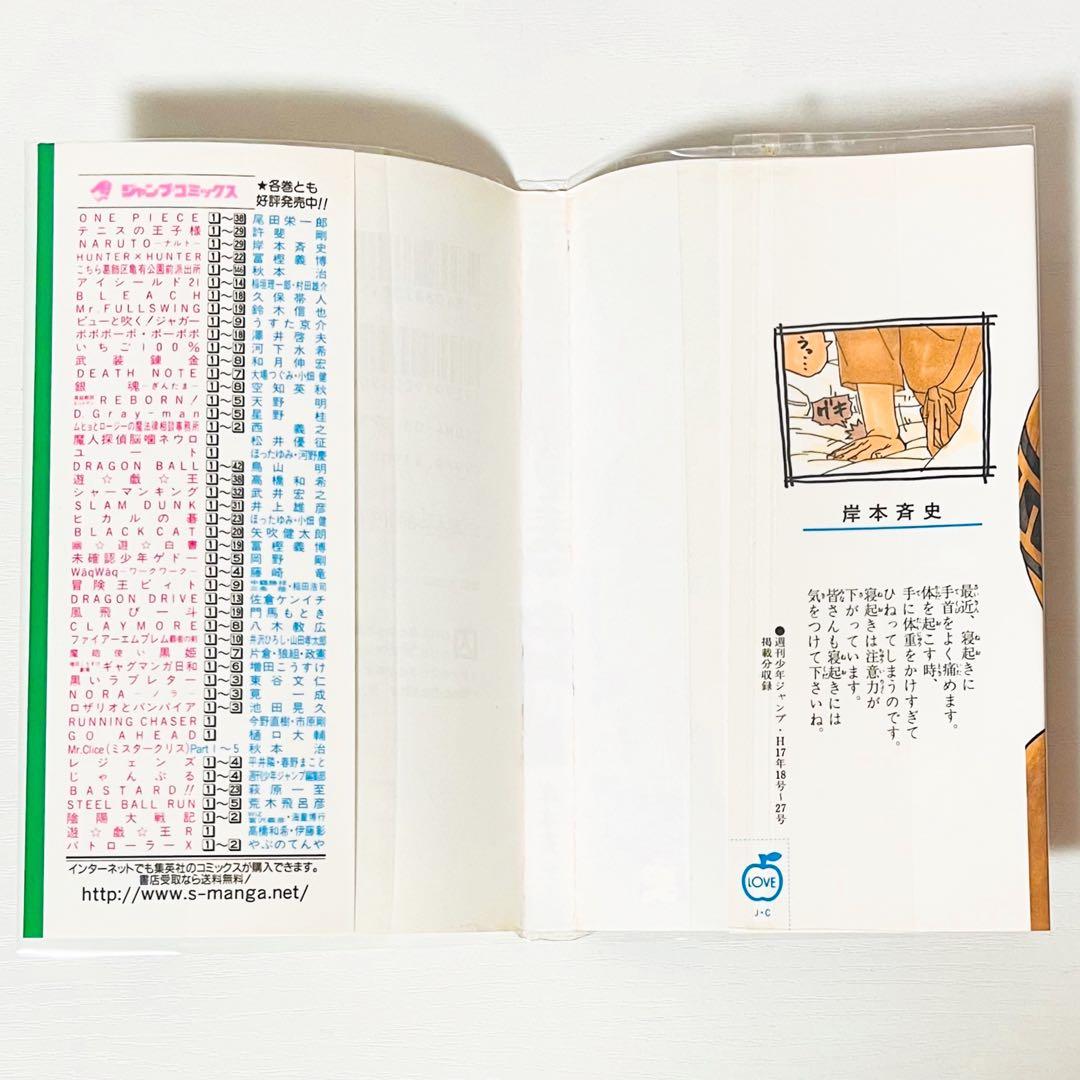 ジャンプコミックス
★各巻とも
好評発売中!!
ONE PIECE 1〜38 尾田栄一郎
テニスの王子様 1〜29 許斐 剛
NARUTO―ナルト― 1〜29 岸本斉史
HUNTER×HUNTER 1〜22 冨樫義博
こちら葛飾区亀有公園前派出所 秋本 治
アイシールド21 1〜14 稲垣理一郎・村田雄介
BLEACH 1〜18 久保帯人
Mr.FULLSWING 1〜19 鈴木信也
ピューと吹く!ジャガー 1〜9 うすた京介
ボボボーボ・ボーボボ 1〜18 澤井啓夫
いちご100% 1〜17 河下水希
武装錬金 1〜8 和月伸宏
DEATH NOTE 1〜7 大場つぐみ・小畑 健
銀魂―ぎんたま― 1〜8 空知英秋
REBORN! 1〜5 天野 明
D.Gray-man 1〜5 星野 桂
ムヒョとロージーの魔法律相談事務所 1〜2 西 義之
魔人探偵脳噛ネウロ 1 松井優征
ユート 1 ほったゆみ・河野慶
DRAGON BALL 1〜42 鳥山 明
遊☆戯☆王 1〜38 高橋和希
シャーマンキング 1〜32 武井宏之
SLAM DUNK 1〜31 井上雄彦
ヒカルの碁 1〜23 ほったゆみ・小畑 健
BLACK CAT 1〜20 矢吹健太朗
幽☆遊☆白書 1〜19 冨樫義博
未確認少年ゲドー 1〜5 岡野 剛
WāqWāq―ワークワーク― 1〜4 藤崎 竜
冒険王ビィト 1〜9 稲田浩司
DRAGON DRIVE 1〜13 佐倉ケンイチ
風飛び一斗 1〜19 門馬もとき
CLAYMORE 1〜8 八木教広
ファイアーエムブレム覇者の剣 1〜10 井沢ひろし・山田孝太郎
魔砲使い黒姫 1〜7 片倉・狼組・政憲
ギャグマンガ日和 1〜6 増田こうすけ
黒いラブレター 1〜3 東谷文仁
NORA―ノラ― 1〜3 筧 一成
ロザリオとバンパイア 1〜3 池田晃久
RUNNING CHASER 1 今野直樹・市原剛
GO AHEAD 1 樋口大輔
Mr.Clice(ミスタークリス)Part 1〜5 秋本 治
レジェンズ 1〜4 平井隣・春野まこと
じゃんぷる 1〜4 週刊少年ジャンプ編集部
BASTARD!! 1〜23 萩原一至
STEEL BALL RUN 1〜5 荒木飛呂彦
陰陽大戦記 1〜2 海童博行
遊☆戯☆王R 1 高橋和希・伊藤彰
パトローラーX 1〜2 やぶのてんや
インターネットでも集英社のコミックスが購入できます。
書店受取なら送料無料!
http://www.s-manga.net/
うっ…
グキ
岸本斉史
最近、寝起きに
手首をよく痛めます。
体を起こす時、
手に体重をかけすぎて
ひねってしまうのです。
寝起きは注意力が
下がっています。
皆さんも寝起きには
気をつけて下さいね。
●週刊少年ジャンプ・H17年18号〜27号
掲載分収録
LOVE
J・C